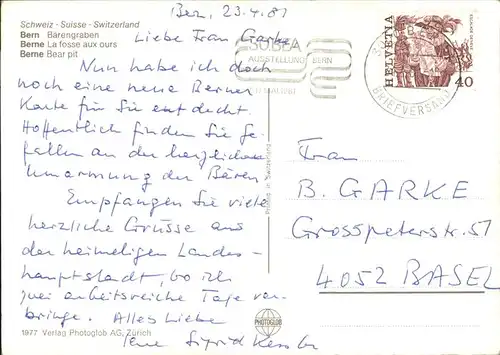 Schweiz - Suisse - Switzerland
Bern Bärengraben
Berne La fosse aux ours
Berne Bear pit
Bern, 23.4.81
Liebe Frau Garke
Nun habe ich doch
noch eine neue Berner
Karte für Sie entdeckt.
Hoffentlich finden Sie Ge-
fallen an der herzlichen
Umarmung der Bären.
Empfangen Sie viele
herzliche Grüsse aus
der heimeligen Landes-
hauptstadt, wo ich
zwei arbeitsreiche Tage ver-
bringe. Alles Liebe
Ihre Sigrid
1977 Verlag Photoglob AG, Zürich
Printed in Switzerland
PHOTOGLOB
AUSSTELLUNG BERN
HELVETIA
40
BRIEFVERSAND
Frau
B. GARKE
Grosspeterstr. 51
4052 BASEL